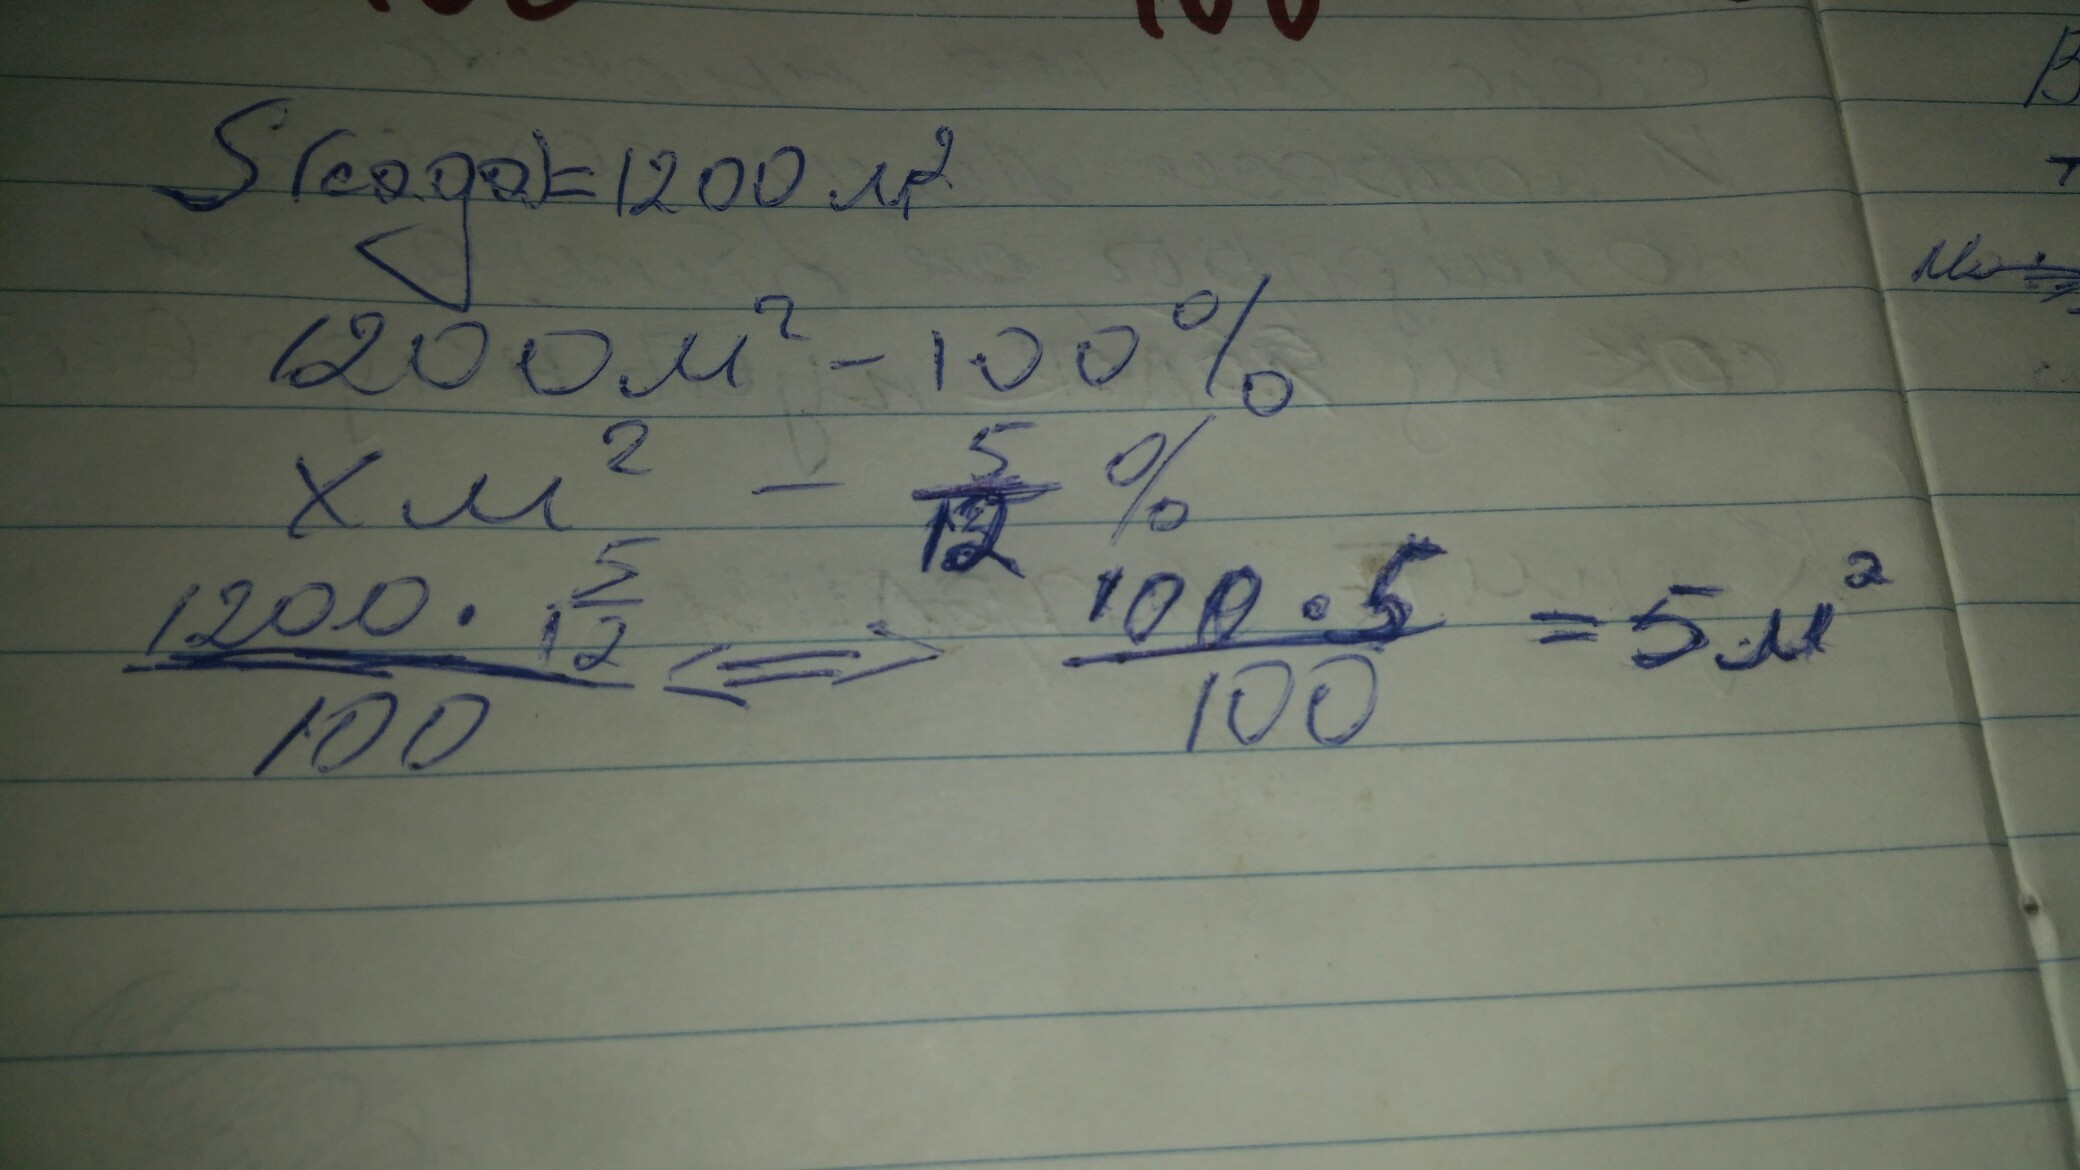 S(сада)=1200 м²
1200 м² - 100%
x м² - 5/12 %
(1200 · 5/12)/100 <=> (100 · 5)/100 = 5 м²